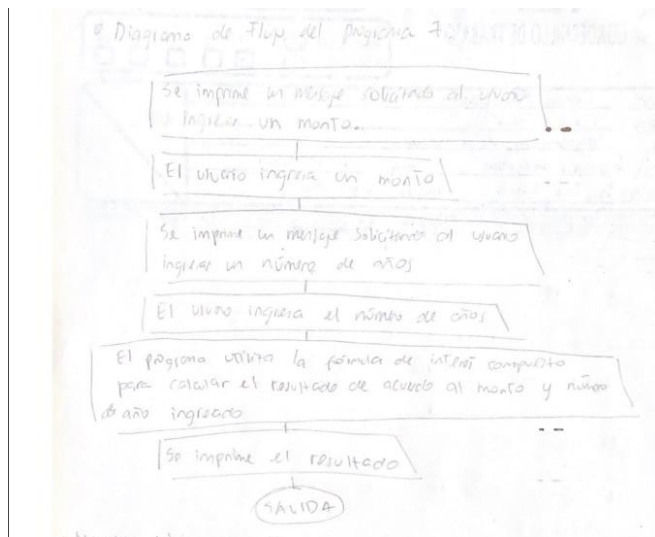 Diagrama de Flujo del programa 7.
Se imprime un mensaje solicitando al usuario
ingresar un monto.
El usuario ingresa un monto
Se imprime un mensaje solicitando al usuario
ingresar un número de años
El usuario ingresa el número de años
El programa utiliza la fórmula de interés compuesto
para calcular el resultado de acuerdo al monto y número
de año ingresado
Se imprime el resultado
SALIDA